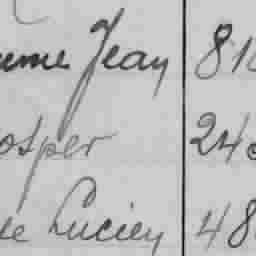 ume Jean 81
osper 24
ue Lucien 48